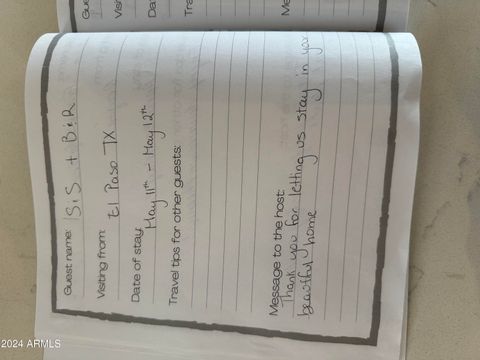 Gue
Visi
Da
Tra
Me
Guest name: ISiS + BiR
Visiting from: El Paso TX
Date of stay: May 11th - May 12th
Travel tips for other guests:
Message to the host:
Thank you for letting us stay in your
beautiful home
2024 ARMLS